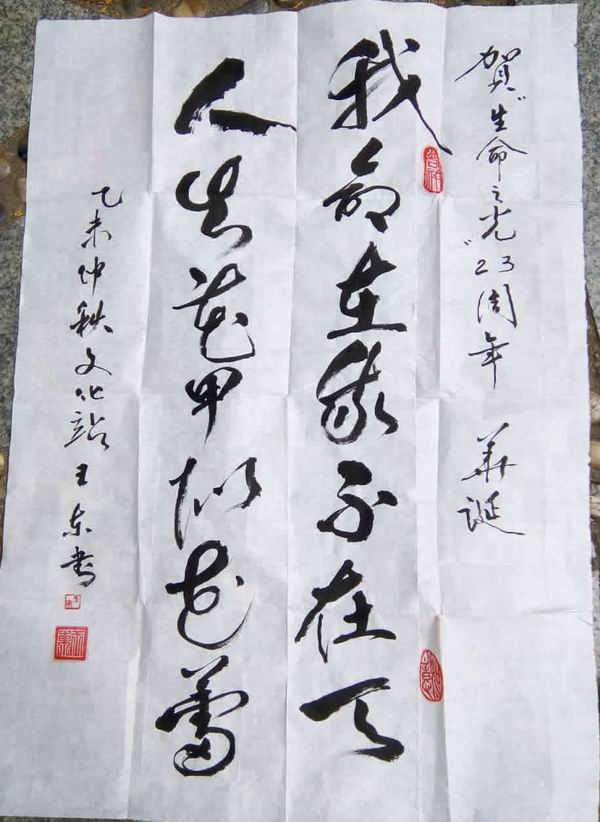 贺"生命之光"23周年 华诞
我命在我不在天
人生花甲似花蕾
乙未仲秋文化站王东书